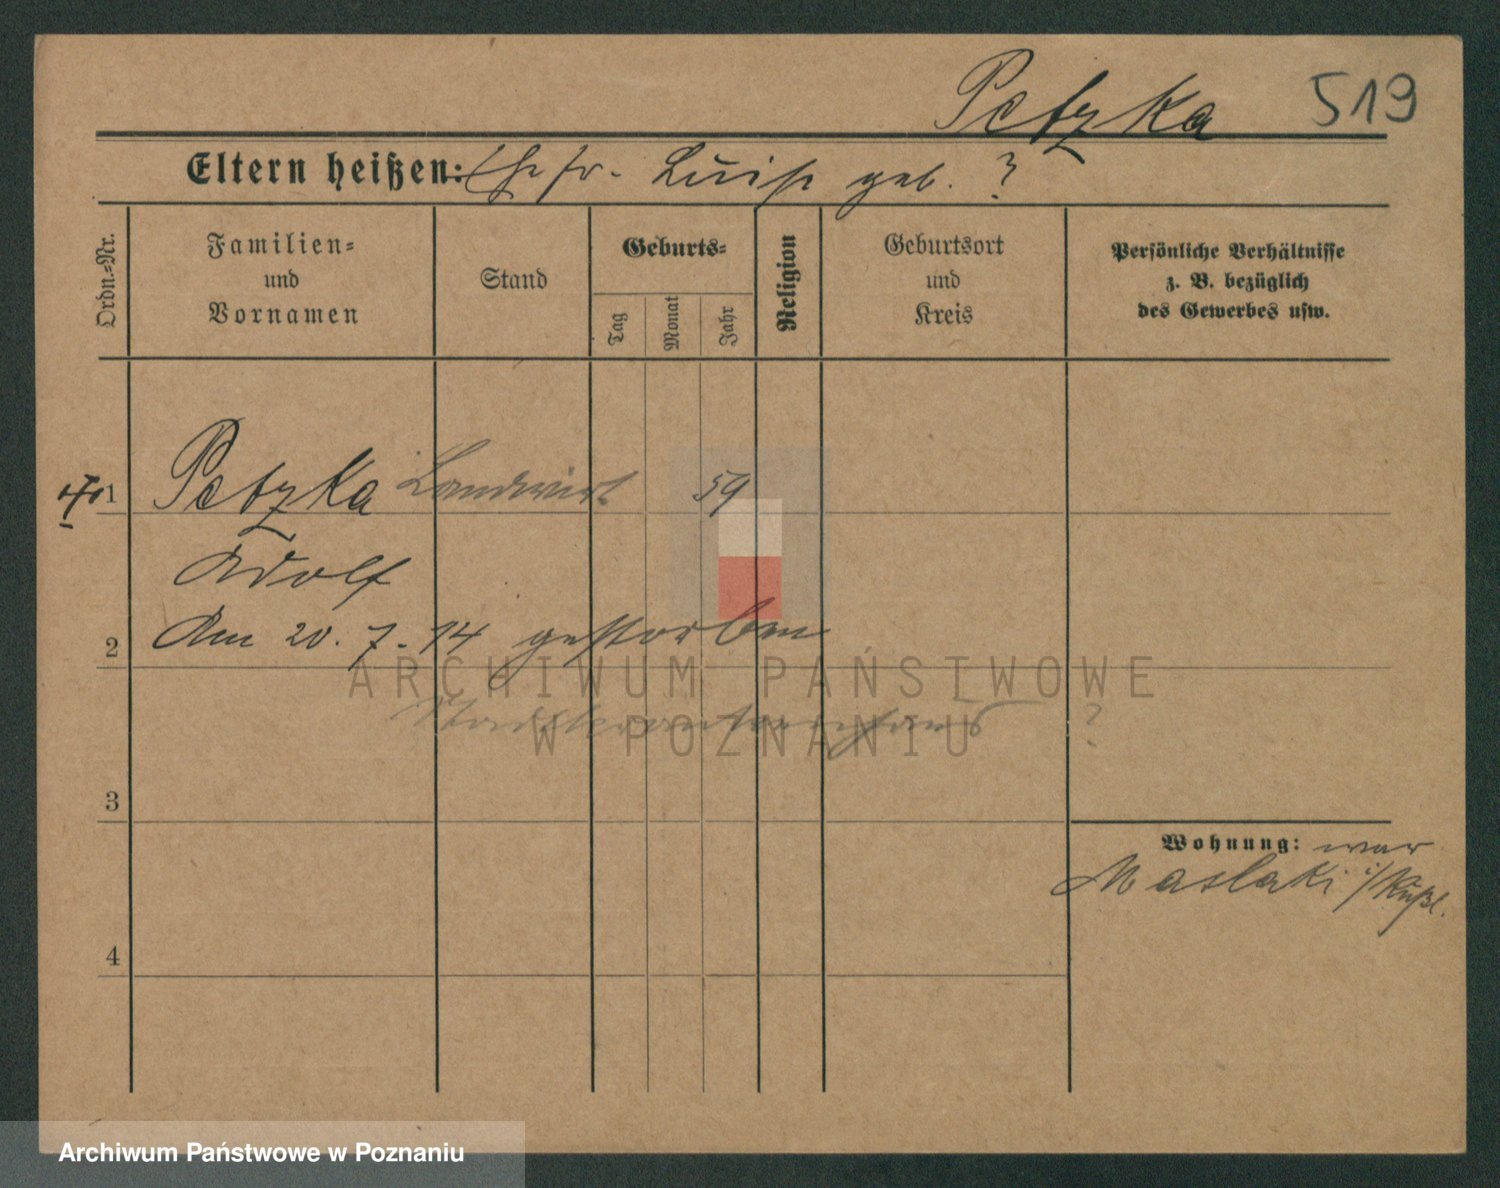 Petzka 519
Eltern heißen: Ehefr. Luise geb. ?
Ordn.=Nr.
Familien=
und
Vornamen
Stand
Geburts=
Tag
Monat
Jahr
Religion
Geburtsort
und
Kreis
Persönliche Verhältnisse
z. B. bezüglich
des Gewerbes usw.
1 Petzka Landwirt 59
Adolf
2 Am 20. 7. 14 gestorben
ARCHIWUM PAŃSTWOWE
Stadtkrankenhaus ?
W POZNANIU
3
Wohnung: war
Maslaki
4
Archiwum Państwowe w Poznaniu